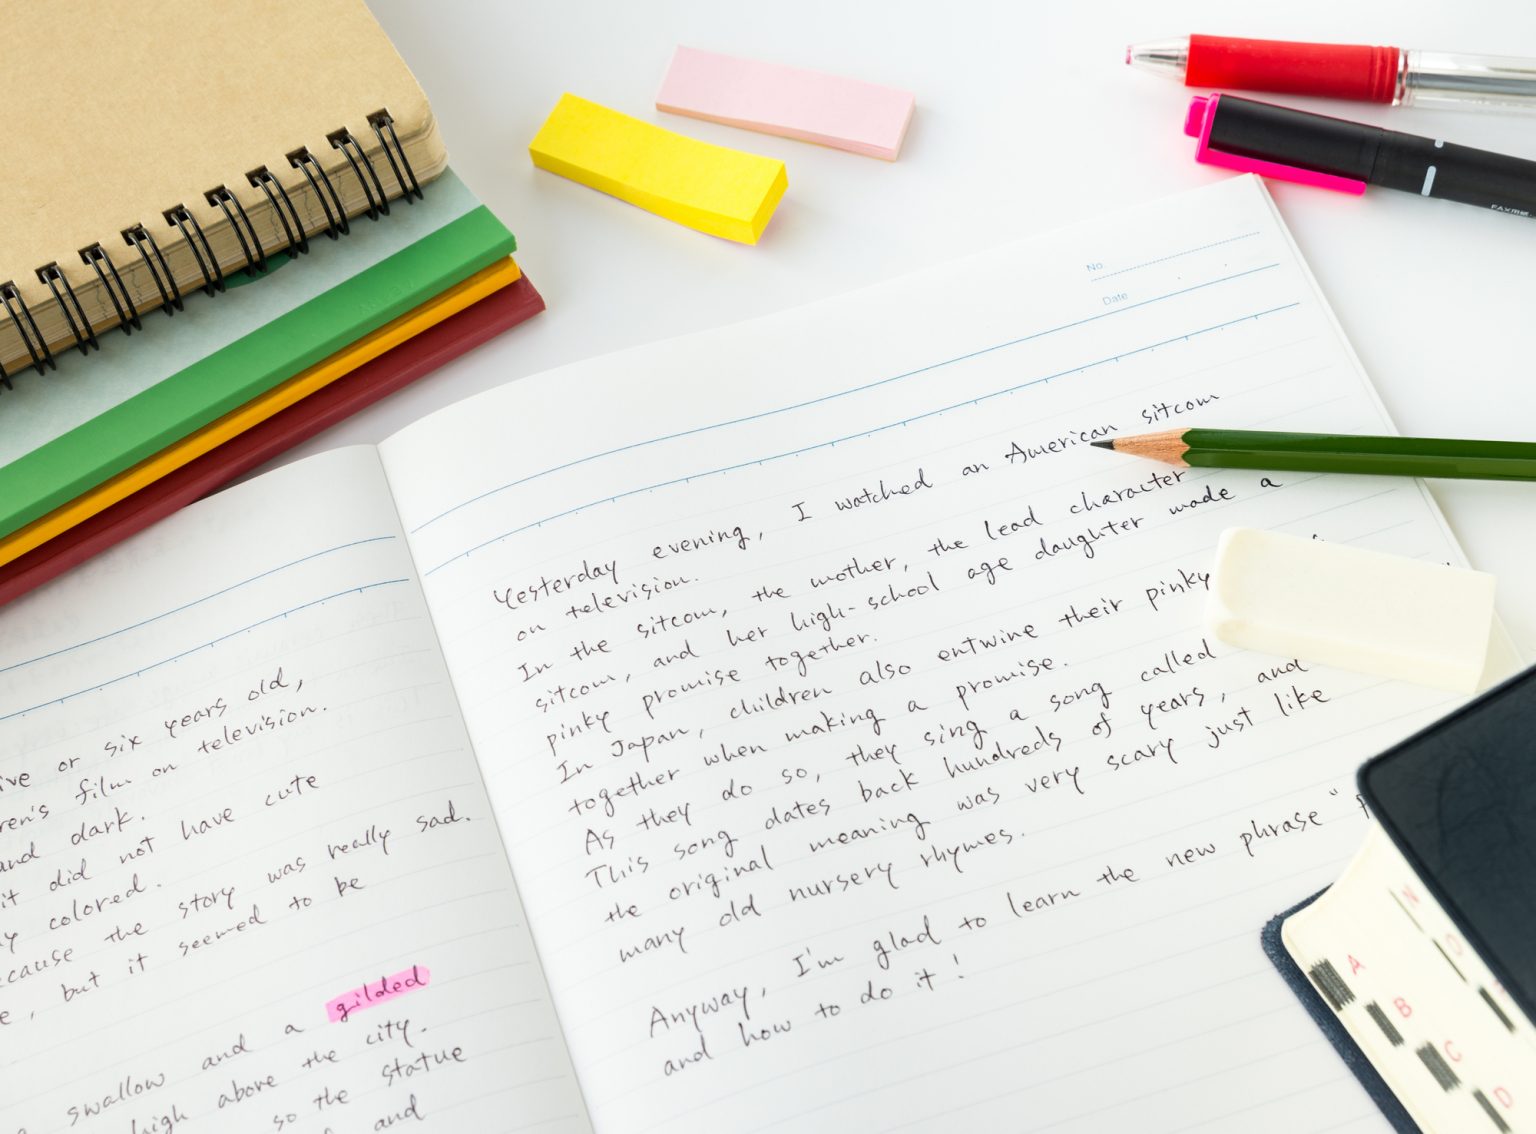 ive or six years old,
ren's film on television.
and dark.
it did not have cute
y colored.
ecause the story was really sad.
e, but it seemed to be
swallow and a gilded
high above the city.
so the statue
and
No.
Date
Yesterday evening, I watched an American sitcom
on television.
In the sitcom, the mother, the lead character
sitcom, and her high-school age daughter made a
pinky promise together.
In Japan, children also entwine their pinky
together when making a promise.
As they do so, they sing a song called
This song dates back hundreds of years, and
the original meaning was very scary just like
many old nursery rhymes.
Anyway, I'm glad to learn the new phrase "
and how to do it!
A
B
C
D
N
O